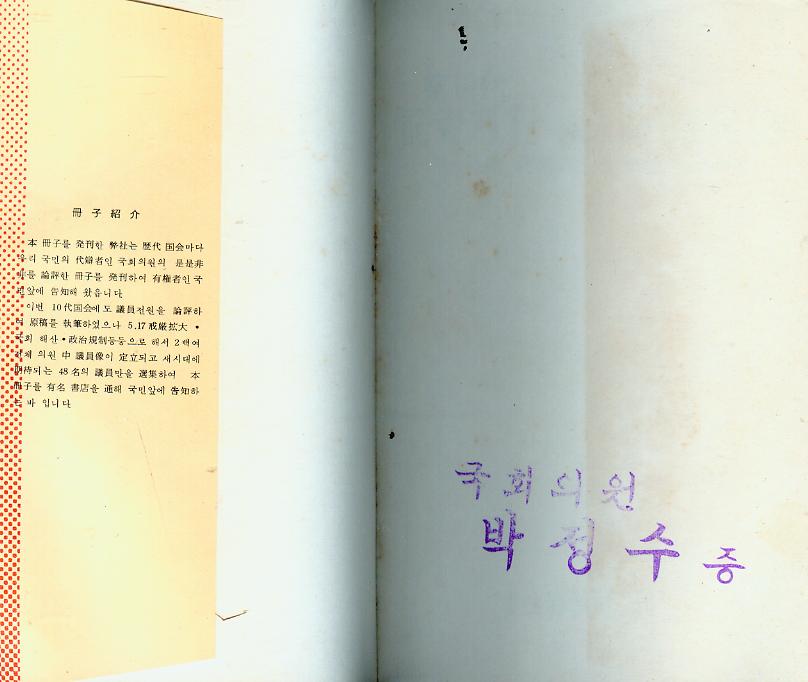 冊子紹介
本 冊子를 発刊한 弊社는 歴代 国会마다
우리 국민의 代辯者인 국회의원의 是是非
非를 論評한 冊子를 発刊하여 有権者인 국
민앞에 告知해 왔읍니다
이번 10代国会에도 議員전원을 論評하
여 原稿를 執筆하였으나 5.17戒厳拡大・
국회 해산・政治規制등등으로 해서 2백여
전체 의원 中 議員像이 定立되고 새시대에
期待되는 48名의 議員만을 選集하여 本
冊子를 有名 書店을 通해 국민앞에 告知하
는 바 입니다
국회의원
박정수 증